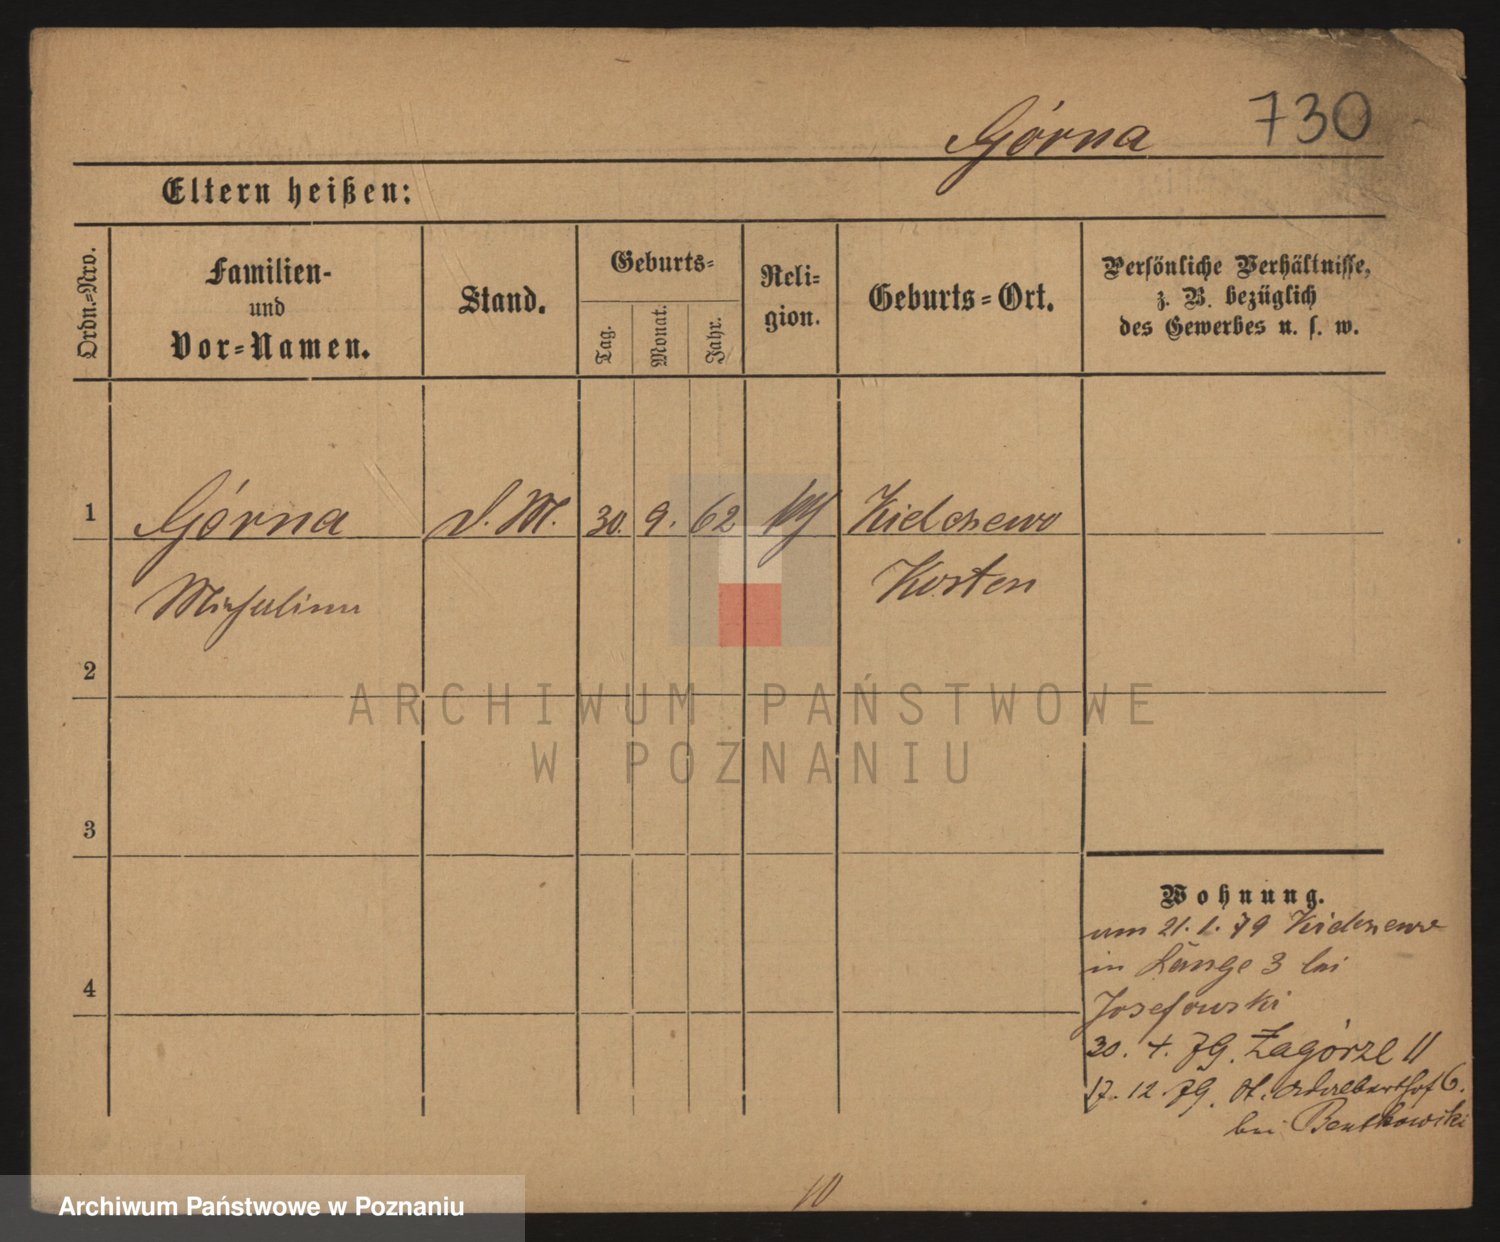 Górna 730
Eltern heißen:
Ordn.=Nro.
Familien-
und
Vor=Namen.
Stand.
Geburts=
Tag.
Monat.
Jahr.
Reli=
gion.
Geburts=Ort.
Persönliche Verhältnisse,
z. B. bezüglich
des Gewerbes u. s. w.
1 Górna D. M. 30. 9. 62 Kielczewo
Michalina Kosten
2
3
4
Wohnung.
am 21. 1. 79 Kielczewo
in Länge 3 bei
Josefowski
30. 4. 79. Zagórze 11
17. 12. 79. 6.
bei Benthowski
10
ARCHIWUM PAŃSTWOWE
W POZNANIU
Archiwum Państwowe w Poznaniu